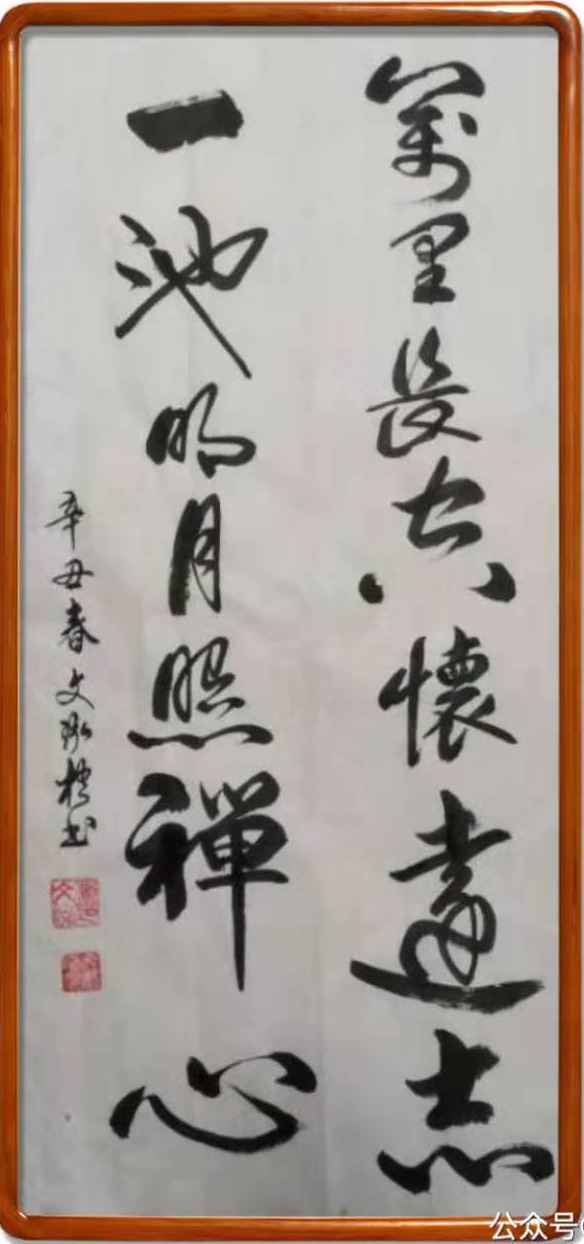 萬里長空懷遠志
一池明月照禪心
辛丑春文泓棧书
公众号